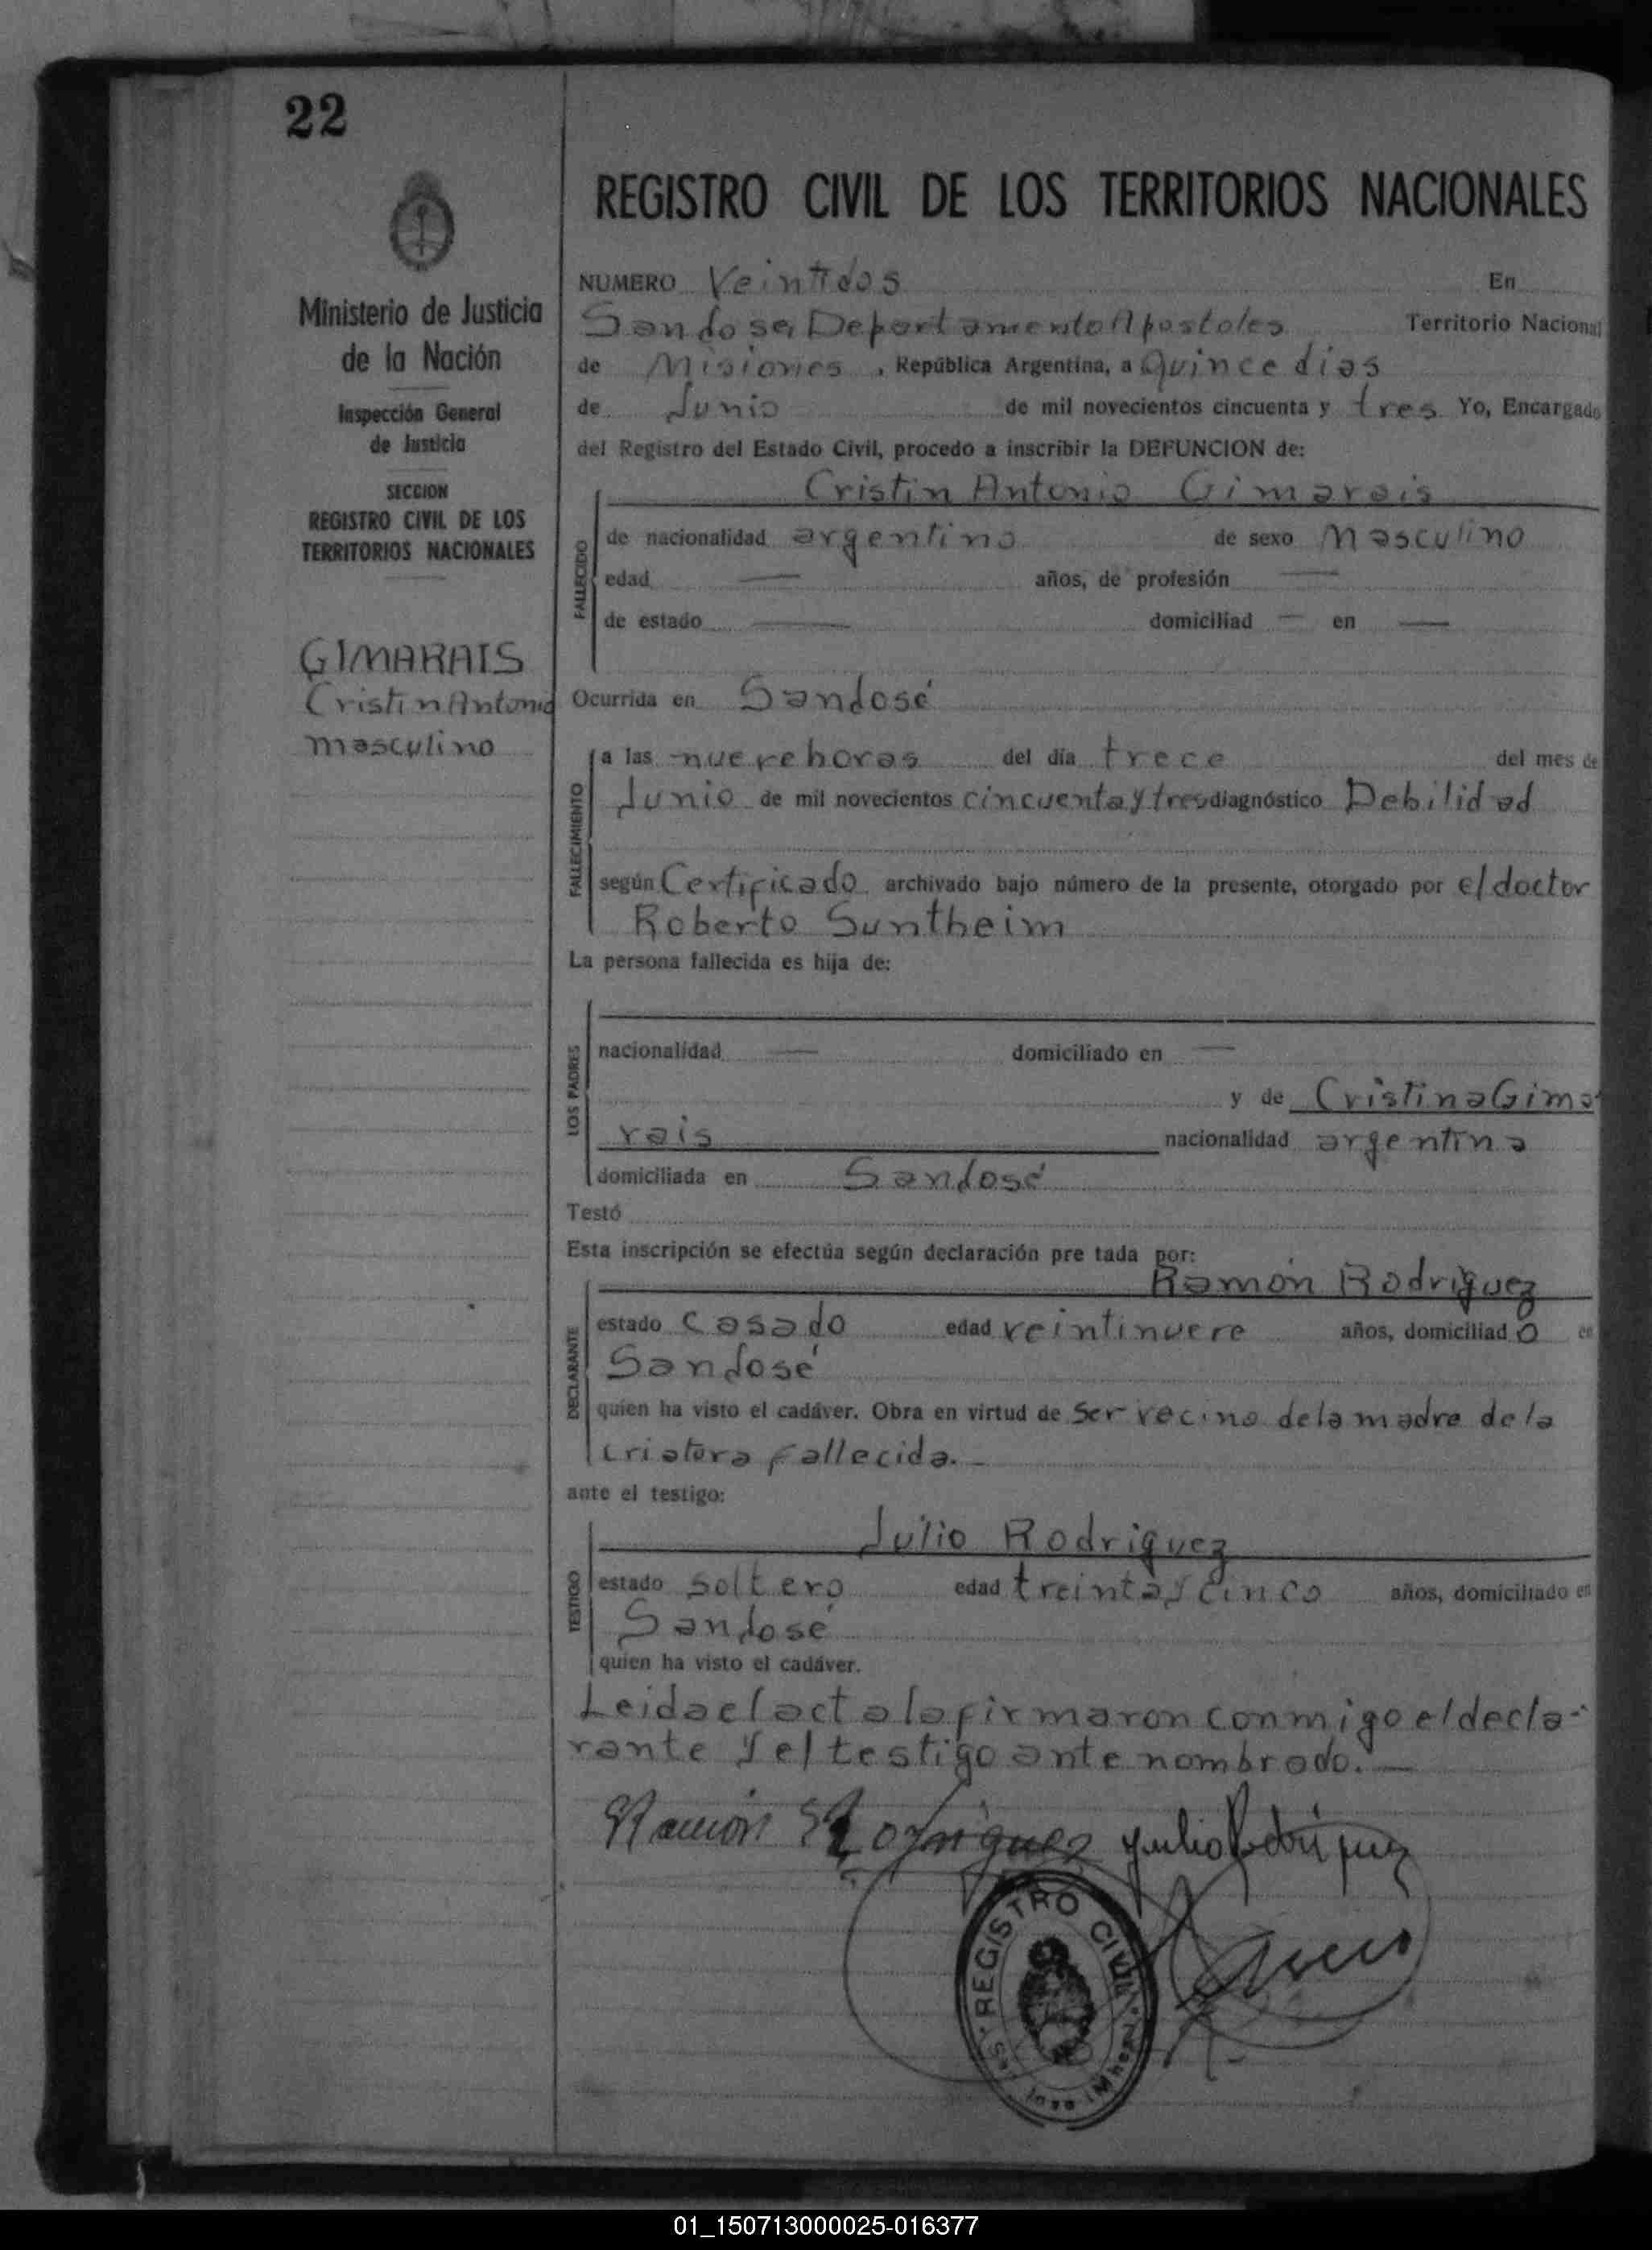 22
Ministerio de Justicia
de la Nación
Inspección General
de Justicia
SECCION
REGISTRO CIVIL DE LOS
TERRITORIOS NACIONALES
GIMARAIS
Cristin Antonio
masculino
REGISTRO CIVIL DE LOS TERRITORIOS NACIONALES
NUMERO Veintidos En
San Jose, Departamento Apostoles Territorio Nacional
de Misiones, República Argentina, a Quince dias
de Junio de mil novecientos cincuenta y tres Yo, Encargado
del Registro del Estado Civil, procedo a inscribir la DEFUNCION de:
Cristin Antonio Gimarais
de nacionalidad argentino de sexo Masculino
FALLECIDO
edad — años, de profesión —
de estado — domiciliad — en —
Ocurrida en San José
a las nueve horas del día trece del mes de
Junio de mil novecientos cincuenta y tres diagnóstico Debilidad
FALLECIMIENTO
según Certificado archivado bajo número de la presente, otorgado por el doctor
Roberto Suntheim
La persona fallecida es hija de:
nacionalidad — domiciliado en —
LOS PADRES
y de Cristina Gima-
rais nacionalidad argentina
domiciliada en San José
Testó
Esta inscripción se efectúa según declaración pre tada por:
Ramón Rodriguez
estado casado edad veintinueve años, domiciliad o en
San José
DECLARANTE
quien ha visto el cadáver. Obra en virtud de ser vecino de la madre de la
criatura fallecida.-
ante el testigo:
Julio Rodriguez
estado soltero edad treinta y cinco años, domiciliado en
TESTIGO
San José
quien ha visto el cadáver.
Leida el acta la firmaron conmigo el decla-
rante y el testigo ante nombrado.—
Ramón Rodriguez Julio Rodriguez
REGISTRO CIVIL
01_150713000025-016377